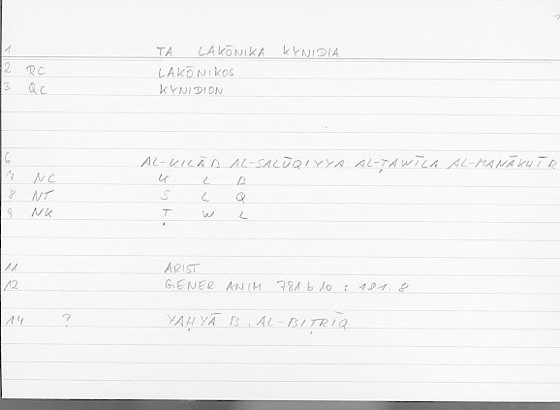 1 TA LAKŌNIKA KYNIDIA
2 QC LAKŌNIKOS
3 QC KYNIDION
6 AL-KILĀB AL-SALŪQIYYA AL-ṬAWĪLA AL-MANĀKHĪR
7 NC K L B
8 NT S L Q
9 NK Ṭ W L
11 ARIST
12 GENER ANIM 781 b 10 : 181. 8
14 ? YAḤYĀ B. AL-BIṬRĪQ